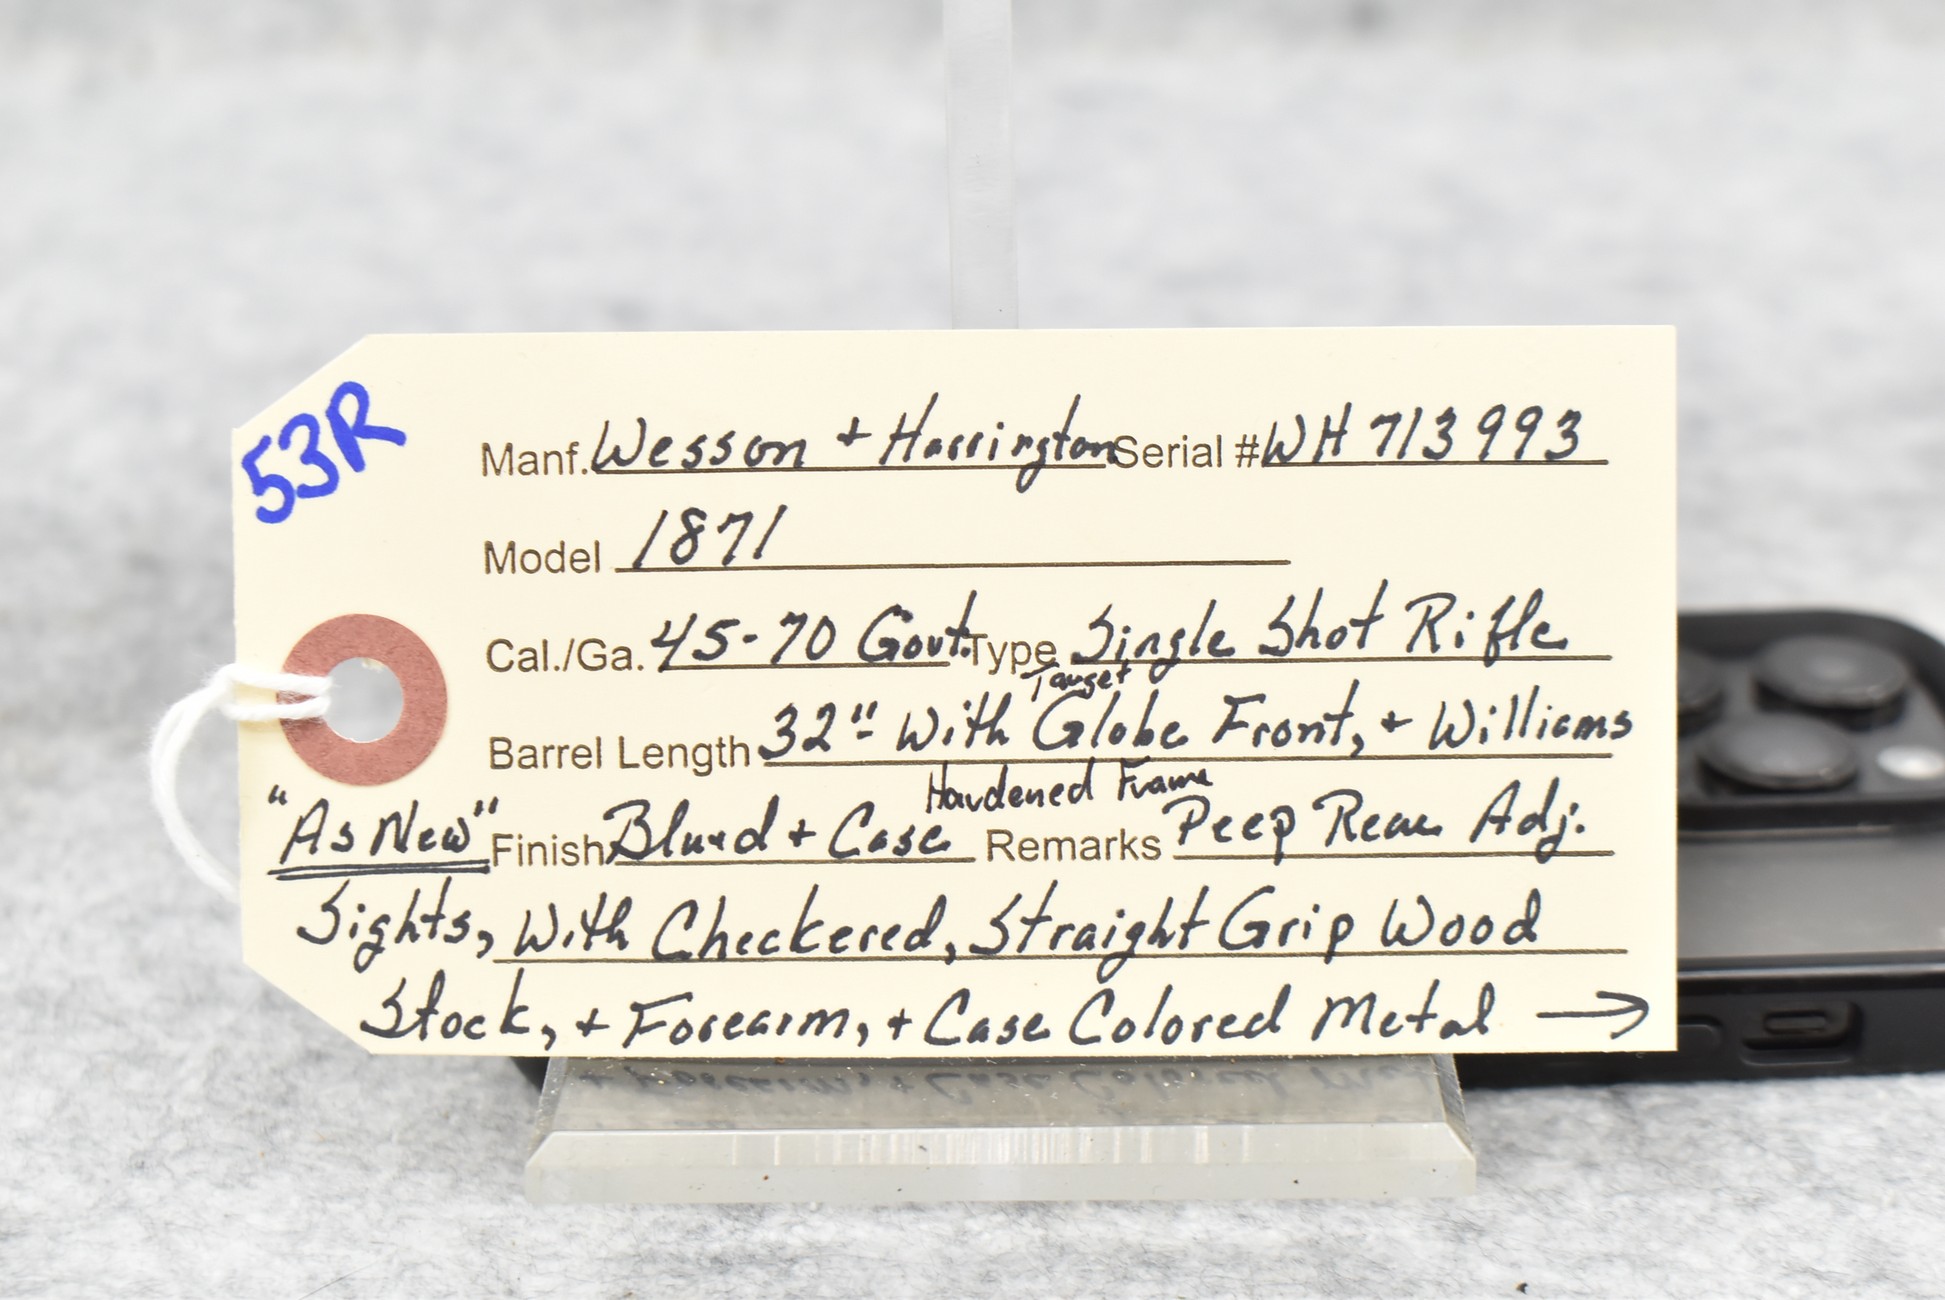 53R
Manf. Wesson + Harrington Serial # WH 713993
Model 1871
Cal./Ga. 45-70 Govt. Type Single Shot Rifle
Target
Barrel Length 32" with Globe Front, + Williams
Hardened Frame
"As New" Finish Blued + Case Remarks Peep Rear Adj.
Sights, with Checkered, Straight Grip Wood
Stock, + Forearm, + Case Colored Metal →